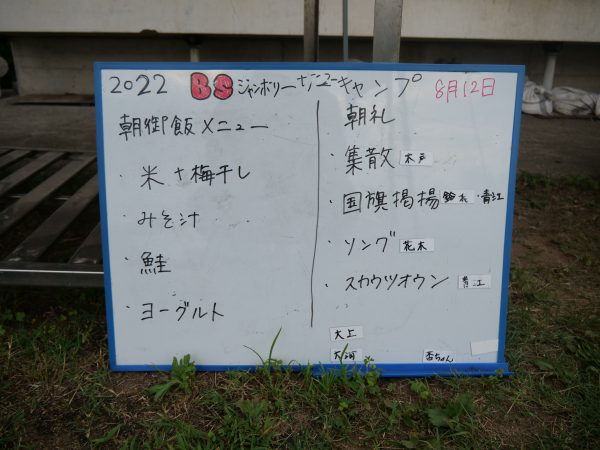 2022 BS ジャンボリー デュエーキャンプ 8月12日
朝御飯メニュー
・米 + 梅干し
・みそ汁
・鮭
・ヨーグルト
朝礼
・集散 木戸
・国旗掲揚 鈴木・青江
・ソング 花木
・スカウツオウン 青江
大上
大河
杏ちゃん